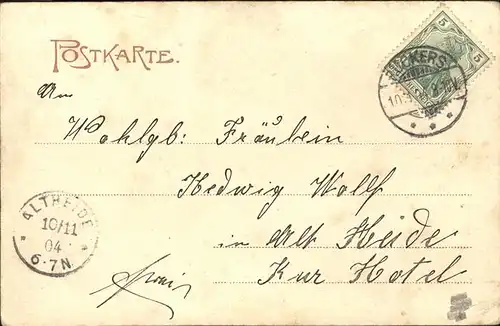 POSTKARTE.
5 5
An
Wohlgb: Fräulein
Hedwig Wolf
in Alt Heide
Kur Hotel
ALTHEIDE
10/11
04
6-7N.